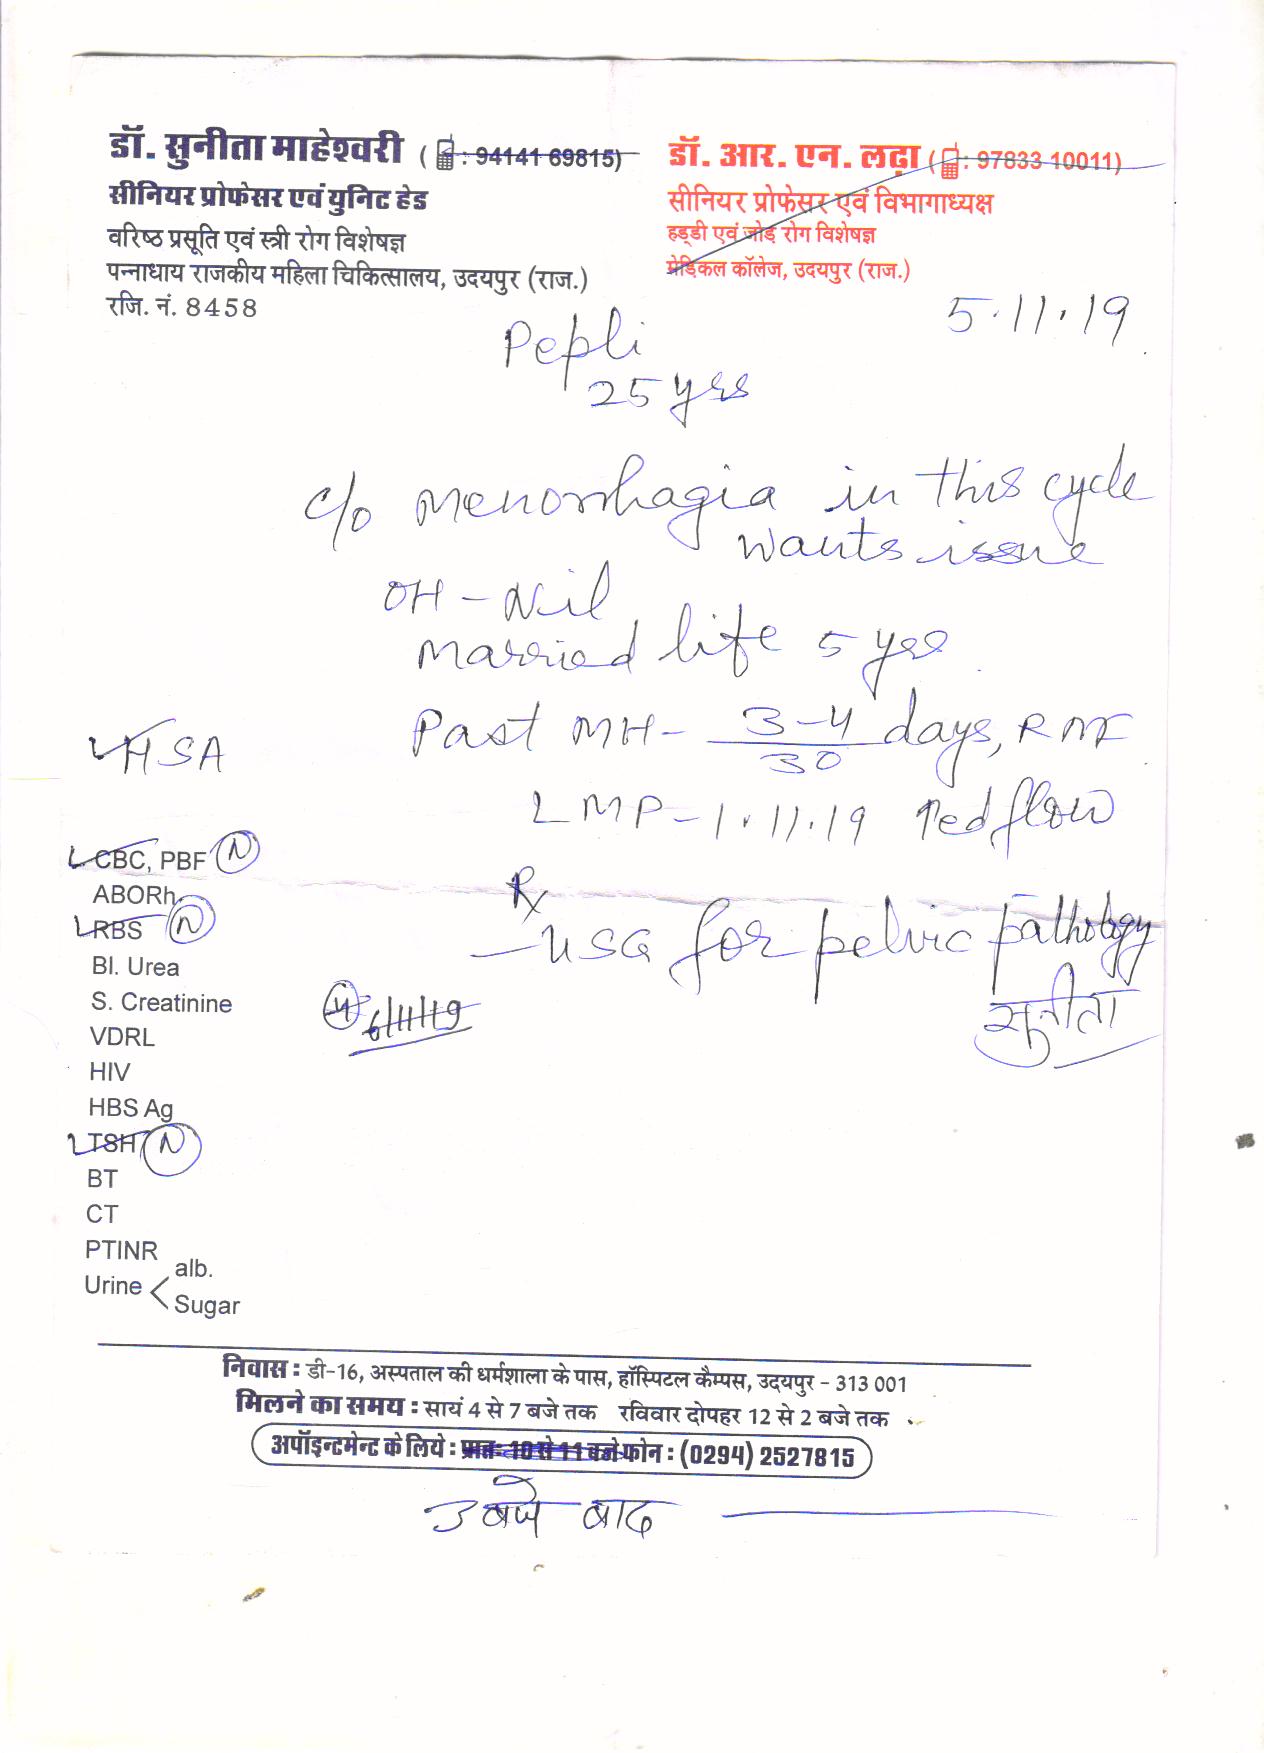 डॉ. सुनीता माहेश्वरी ( : 94141 69815)
सीनियर प्रोफेसर एवं युनिट हेड
वरिष्ठ प्रसूति एवं स्त्री रोग विशेषज्ञ
पन्नाधाय राजकीय महिला चिकित्सालय, उदयपुर (राज.)
रजि. नं. 8458
डॉ. आर. एन. लढ़ा ( : 97833 10011)
सीनियर प्रोफेसर एवं विभागाध्यक्ष
हड्डी एवं जोड़ रोग विशेषज्ञ
मेडिकल कॉलेज, उदयपुर (राज.)
5.11.19
Pepli
25 yrs
c/o Menorrhagia in this cycle
wants issue
OH - Nil
Married life 5 yrs
Past MH - 3-4/30 days, RNF
LMP - 1.11.19 flow
Rx
- USG for pelvic pathology
सुनीता
6/11/19
HSA
CBC, PBF N
ABORh
RBS N
Bl. Urea
S. Creatinine
VDRL
HIV
HBS Ag
TSH N
BT
CT
PTINR
Urine < alb.
Sugar
निवास : डी-16, अस्पताल की धर्मशाला के पास, हॉस्पिटल कैम्पस, उदयपुर - 313 001
मिलने का समय : सायं 4 से 7 बजे तक रविवार दोपहर 12 से 2 बजे तक
अपॉइन्टमेन्ट के लिये : प्रातः 10 से 11 बजे फोन : (0294) 2527815
3 बजे बाद